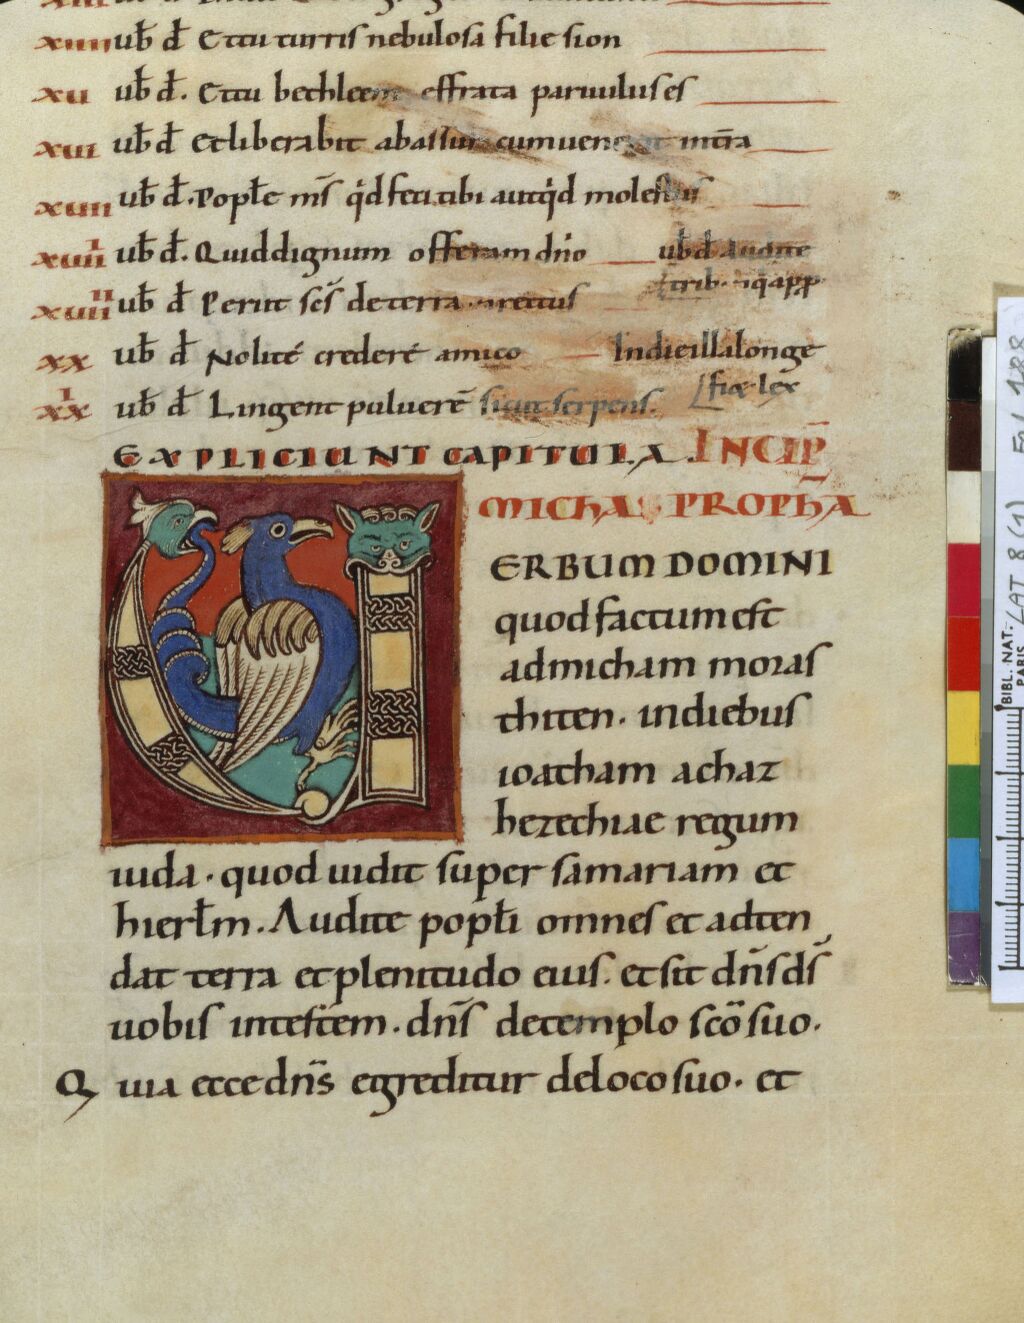 xiiii ub̄ d̄ Et tu turris nebulosa filie sion
xv ub̄ d̄. Et tu bethleem effrata paruulus es
xvi ub̄ d̄ Et liberabit ab assur cum uenerit in t̄ra
xvii ub̄ d̄. Popl̄e m̄s q̇d feci tibi aut q̇d molestus
xviii ub̄ d̄. Quid dignum offeram dn̄o ub̄ d̄ Audite
xviiii ub̄ d̄ Periit sc̄s de terra. arectus trib.
xx ub̄ d̄ Nolite credere amico In die illa longe
xxi ub̄ d̄ Lingent puluerē sicut serpens. [fiæ. lex
EXPLICIUNT CAPITULA. INCIP̄
MICHA PROPHA
UERBUM DOMINI
quod factum est
ad micham moras
thiten. in diebus
ioatham achaz
hezechiae regum
iuda. quod uidit super samariam et
hierl̄m. Audite popl̄i omnes et adten
dat terra et plenitudo eius. et sit dn̄s d̄s
uobis in testem. dn̄s de templo sc̄o suo.
Quia ecce dn̄s egreditur de loco suo. et
BIBL. NAT.
PARIS
LAT 8 (1)